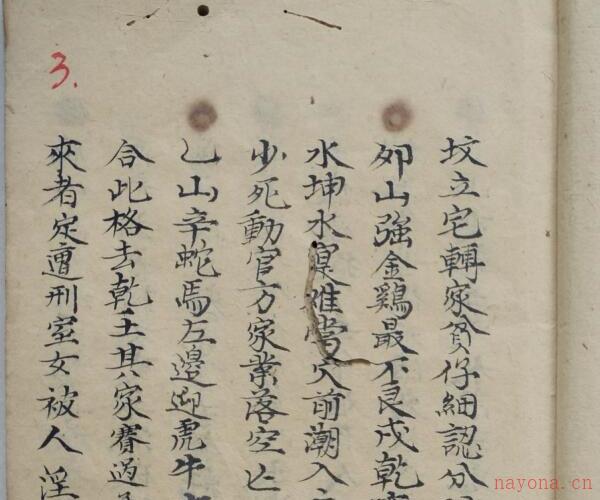 3.
坟立宅轉家貧仔細認分
夘山強金鷄最不良戌乾
水坤水寔难當穴前潮入
少死動官方家業落空亡
乙山辛蛇焉左邊迎虎牛
合此格去乾土其家賽過
夾者定遭刑室女被人淫
nayona.cn